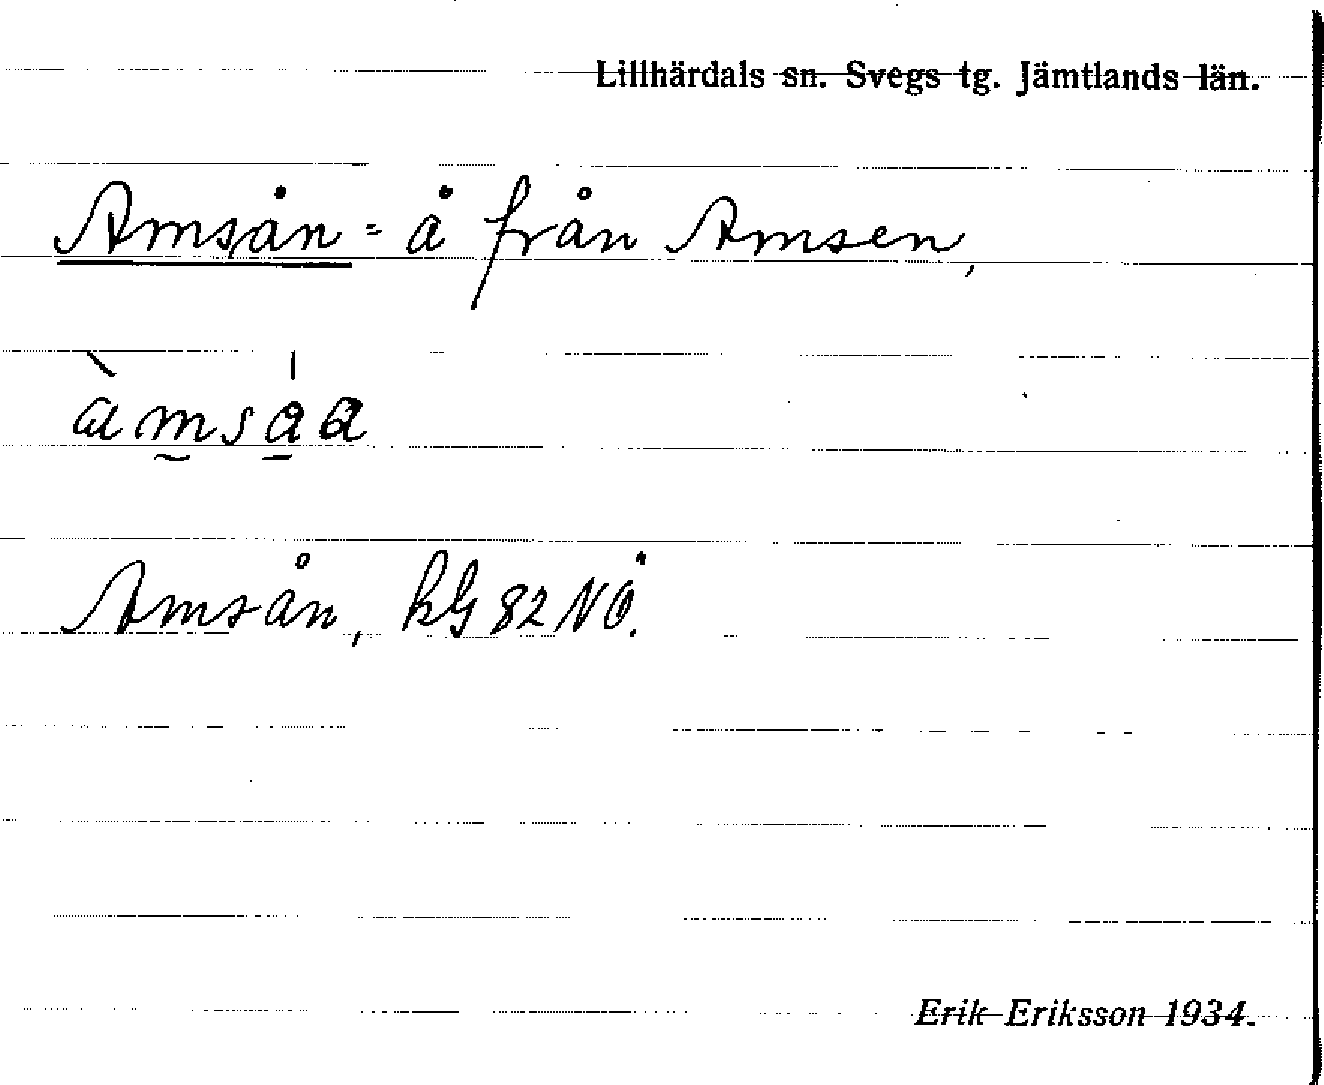 Lillhärdals sn. Svegs tg. Jämtlands län.
Amsån = å från Amsen,
àmsåa
Amsån, kG 82 NÖ.
Erik Eriksson 1934.